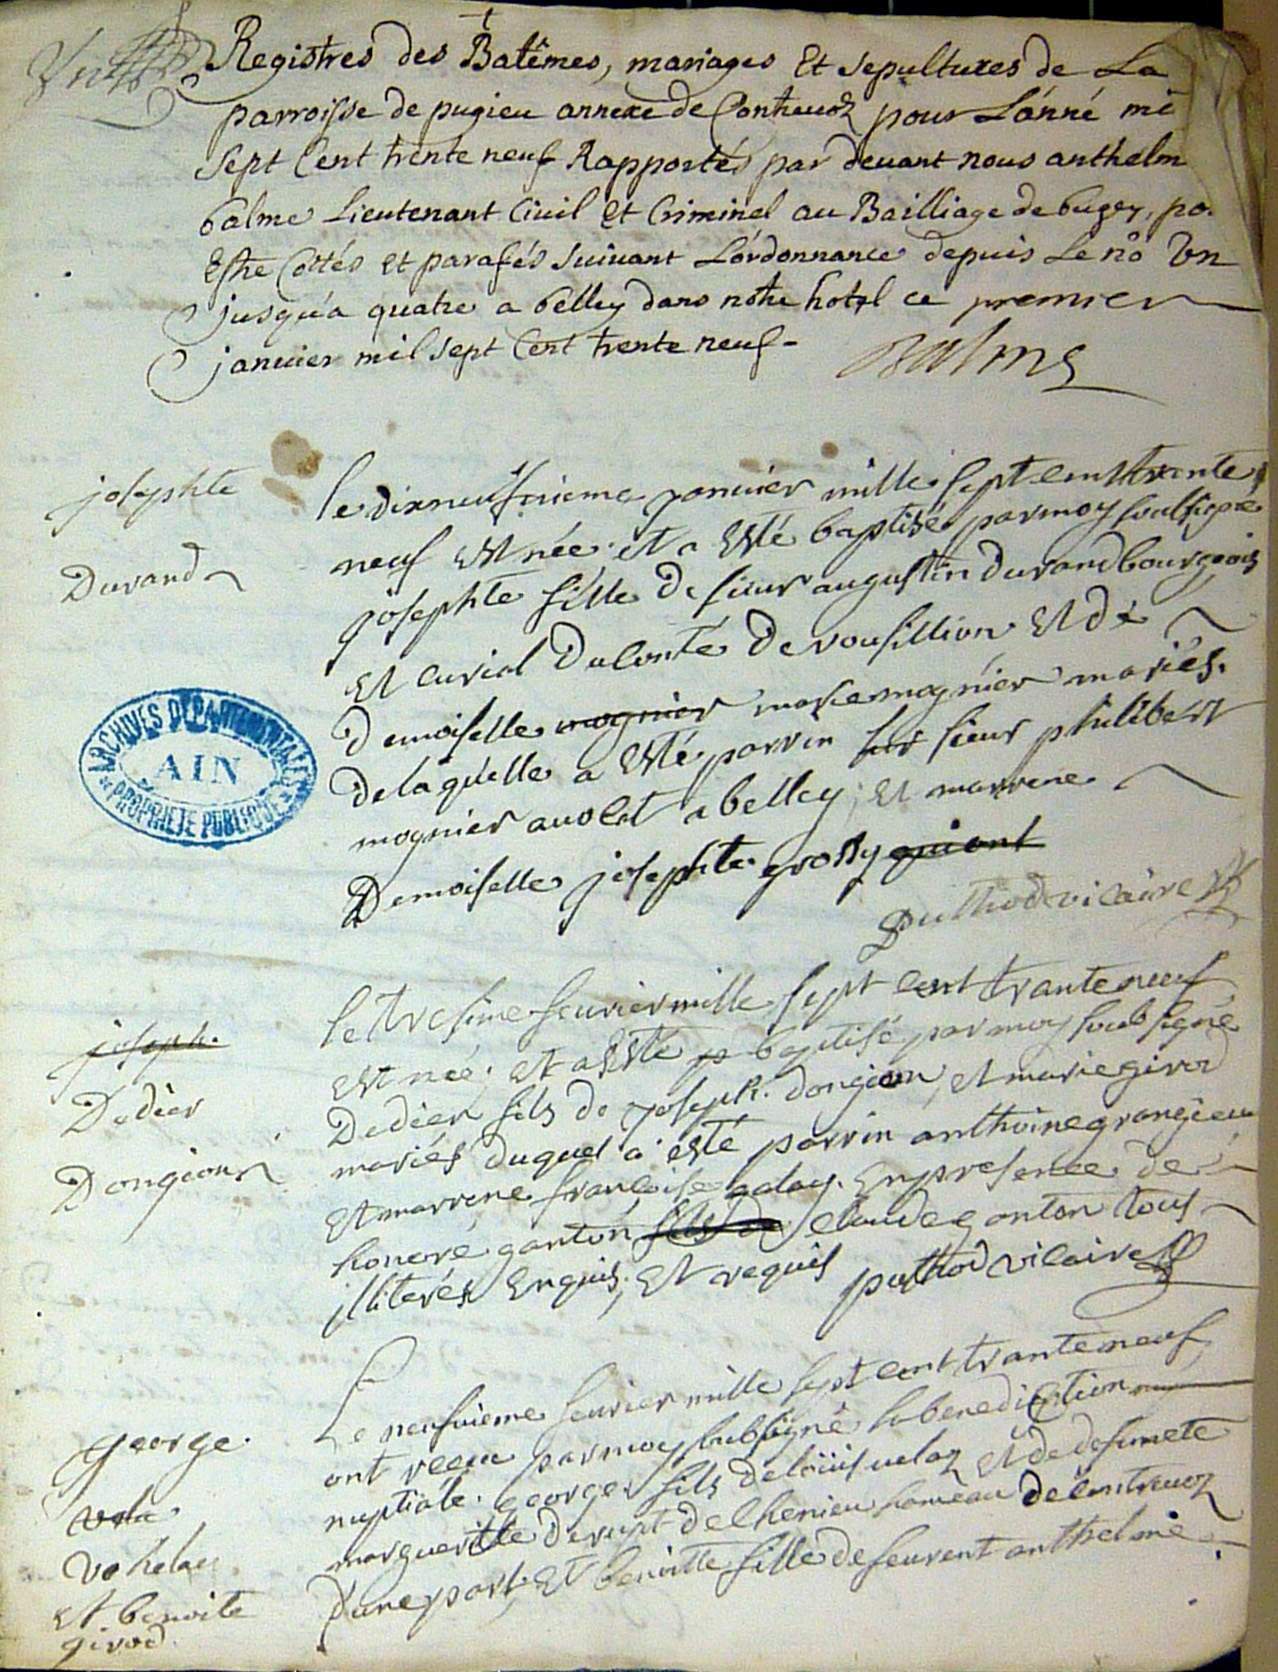 Registres des Batêmes, mariages Et sepultures de La
parroisse de pugieu annexe de Contrevoz pour L'anné mi
sept Cent trente neuf Rapportés par devant nous anthelm
balme Lieutenant Civil et Criminel au Bailliage de bugey, po.
Estre Cottés et parafés suivant L'ordonnance depuis Le no Un
jusqu'a quatre a belley dans notre hotel ce premier
janvier mil sept Cent trente neuf -
Balme
josephte
Durand
le dixneufvieme janvier mille sept cent trante
neuf est née et a esté baptisée par moy soubsigné
josephte fille de sieur augustin durand bourgeois
et curial du Conté de rousillion et de
demoiselle mognier marie mognier mariés.
de laquelle a esté parrin sieur philibert
mognier avocat a belley; et marrene
Demoiselle josephte grossy
puthod vicaire
joseph.
Dedier
Dongion
le tresime feuvrier mille sept cent trante neuf
est née; et a esté baptisé par moy soub signé
Dedier fils de joseph dongion, et marie girod
mariés duquel a esté parrin anthoine grangieu
et marrene françoise Enpresence de
honoré ganton fils de claude ganton tous
illiterés Enquis, et requis puthod vicaire
george.
vela
et benoite
girod.
Le neufvieme feuvrier mille sept cent trante neuf
ont receu par moy subsigné la benediction
nuptiale. george fils de loüis veloz et de defuncte
marguerite derupt de Chenieu hameau de Contrevoz
d'une part; et benoitte fille de feurent anthelme
ARCHIVES DÉPARTEMENTALES
AIN
PROPRIÉTÉ PUBLIQUE